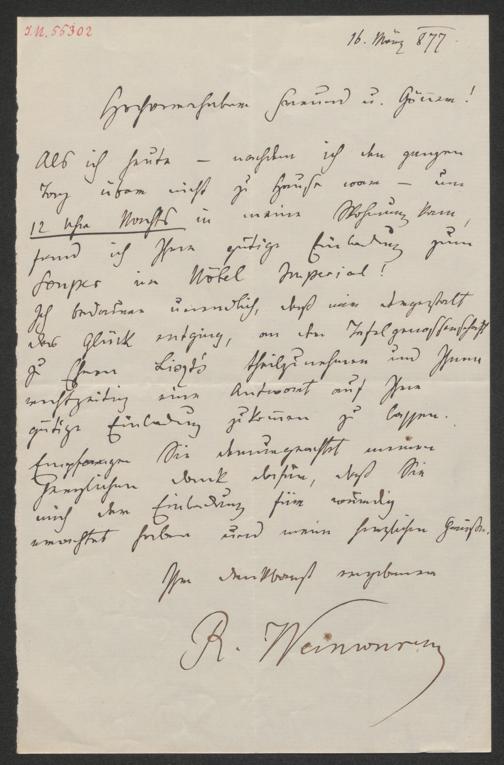 I.N. 55302
16. März 877.
Hochverehrter Freund u. Gönner!
Als ich heute – nachdem ich den ganzen
Tag über nicht zu Hause war – um
12 Uhr Nachts in meine Wohnung kam,
fand ich Ihre gütige Einladung zum
Souper im Hôtel Imperial!
Ich bedauere unendlich, daß mir dergestalt
das Glück entging, an der Tafelgenossenschaft
zu Ehren Liszt's theilzunehmen und Ihnen
rechtzeitig eine Antwort auf Ihre
gütige Einladung zukommen zu lassen.
Empfangen Sie demungeachtet meinen
herzlichen Dank dafür, daß Sie
mich der Einladung für würdig
erachtet haben und meine herzlichen Grüße.
Ihr dankbarst ergebener
R. Weinwurm